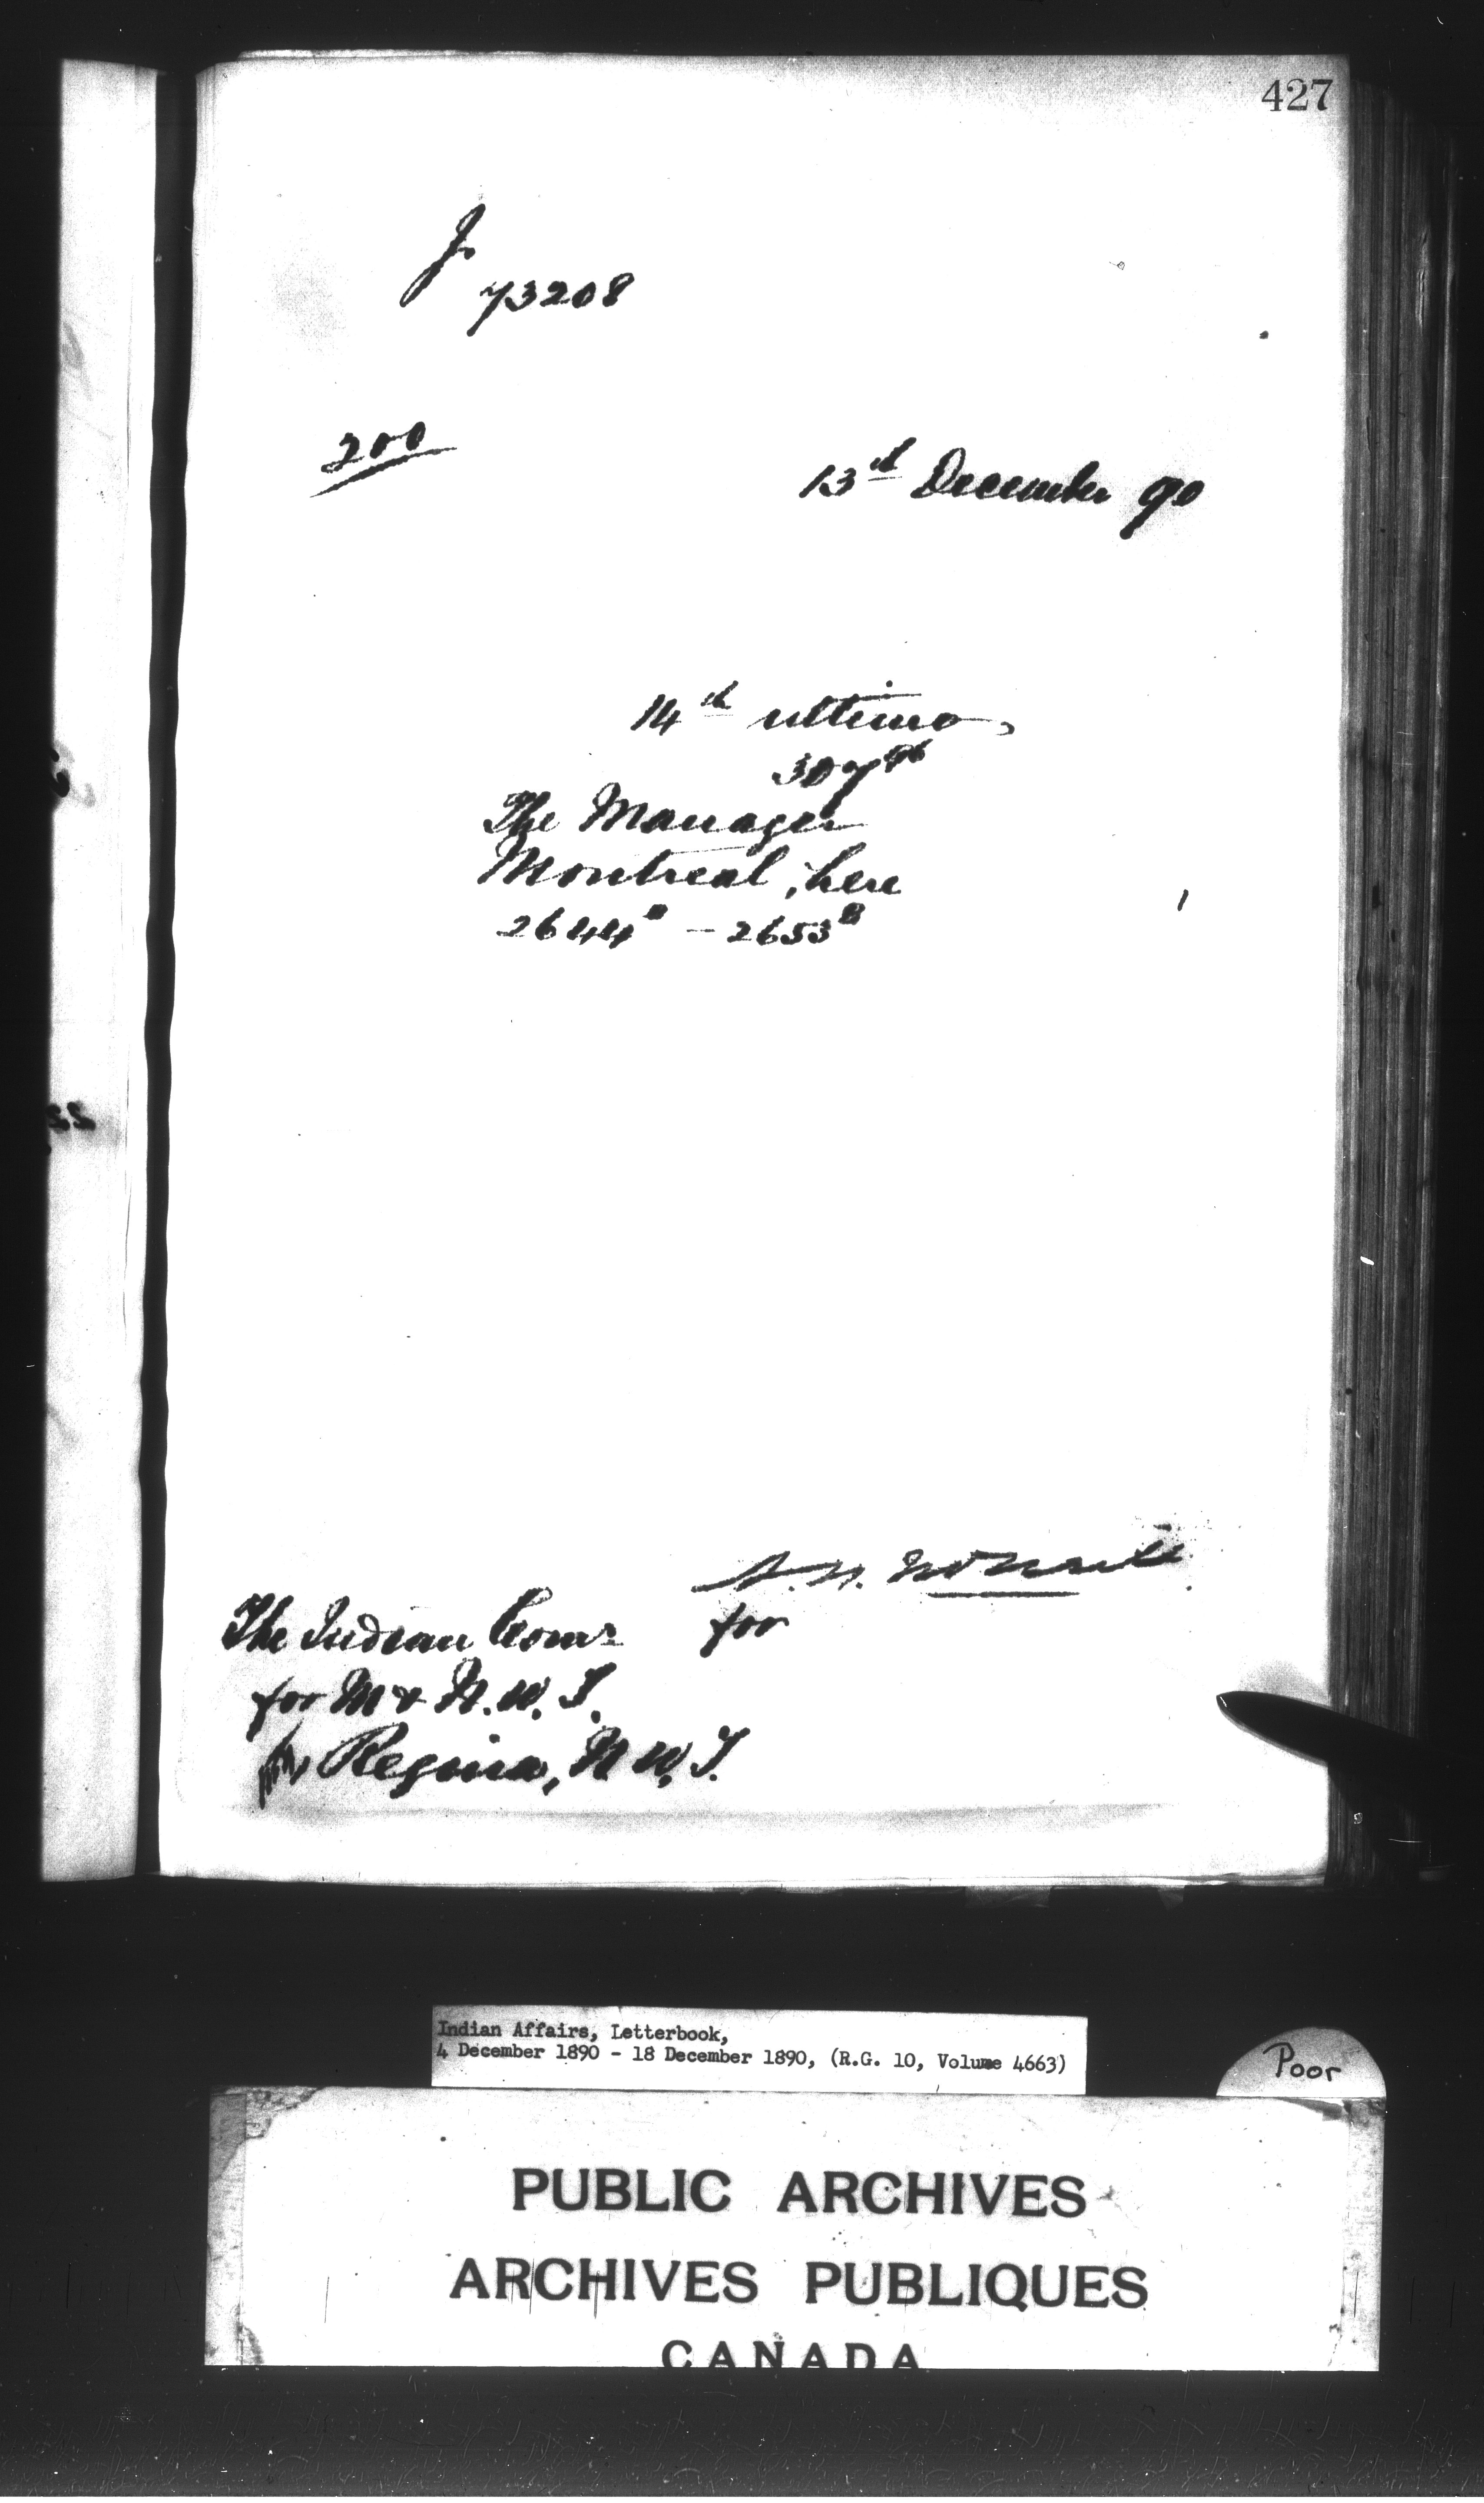 427
J
73208
200
13th December 90
14th ultimo,
307
The Manager
Montreal, here
2644 - 2653
for
The Indian Comr
for M & N. W. T.
Regina, N W. T.
Indian Affairs, Letterbook,
4 December 1890 - 18 December 1890, (R.G. 10, Volume 4663)
Poor
PUBLIC ARCHIVES
ARCHIVES PUBLIQUES
CANADA